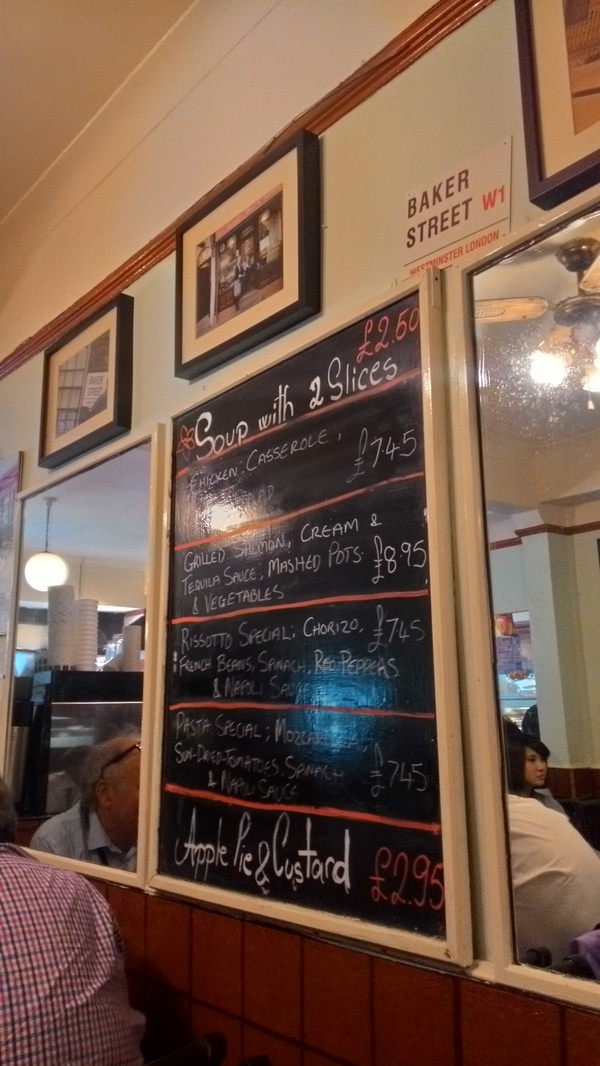 BAKER
STREET W1
WESTMINSTER LONDON
BAKER
STREET
£2.50
Soup with 2 Slices
CHICKEN: CASSEROLE,
£7.45
GRILLED SALMON, CREAM &
TEQUILA SAUCE, MASHED POTS. £8.95
& VEGETABLES
RISSOTTO SPECIAL; CHORIZO, £7.45
FRENCH BEANS, SANACH, RED PEPPERS
& NAPOLI SAUCE
PASTA SPECIAL; MOZZARELLA,
SUN-DRIED-TOMATOES, SANACH £7.45
& NAPOLI SAUCE
Apple Pie & Custard £2.95